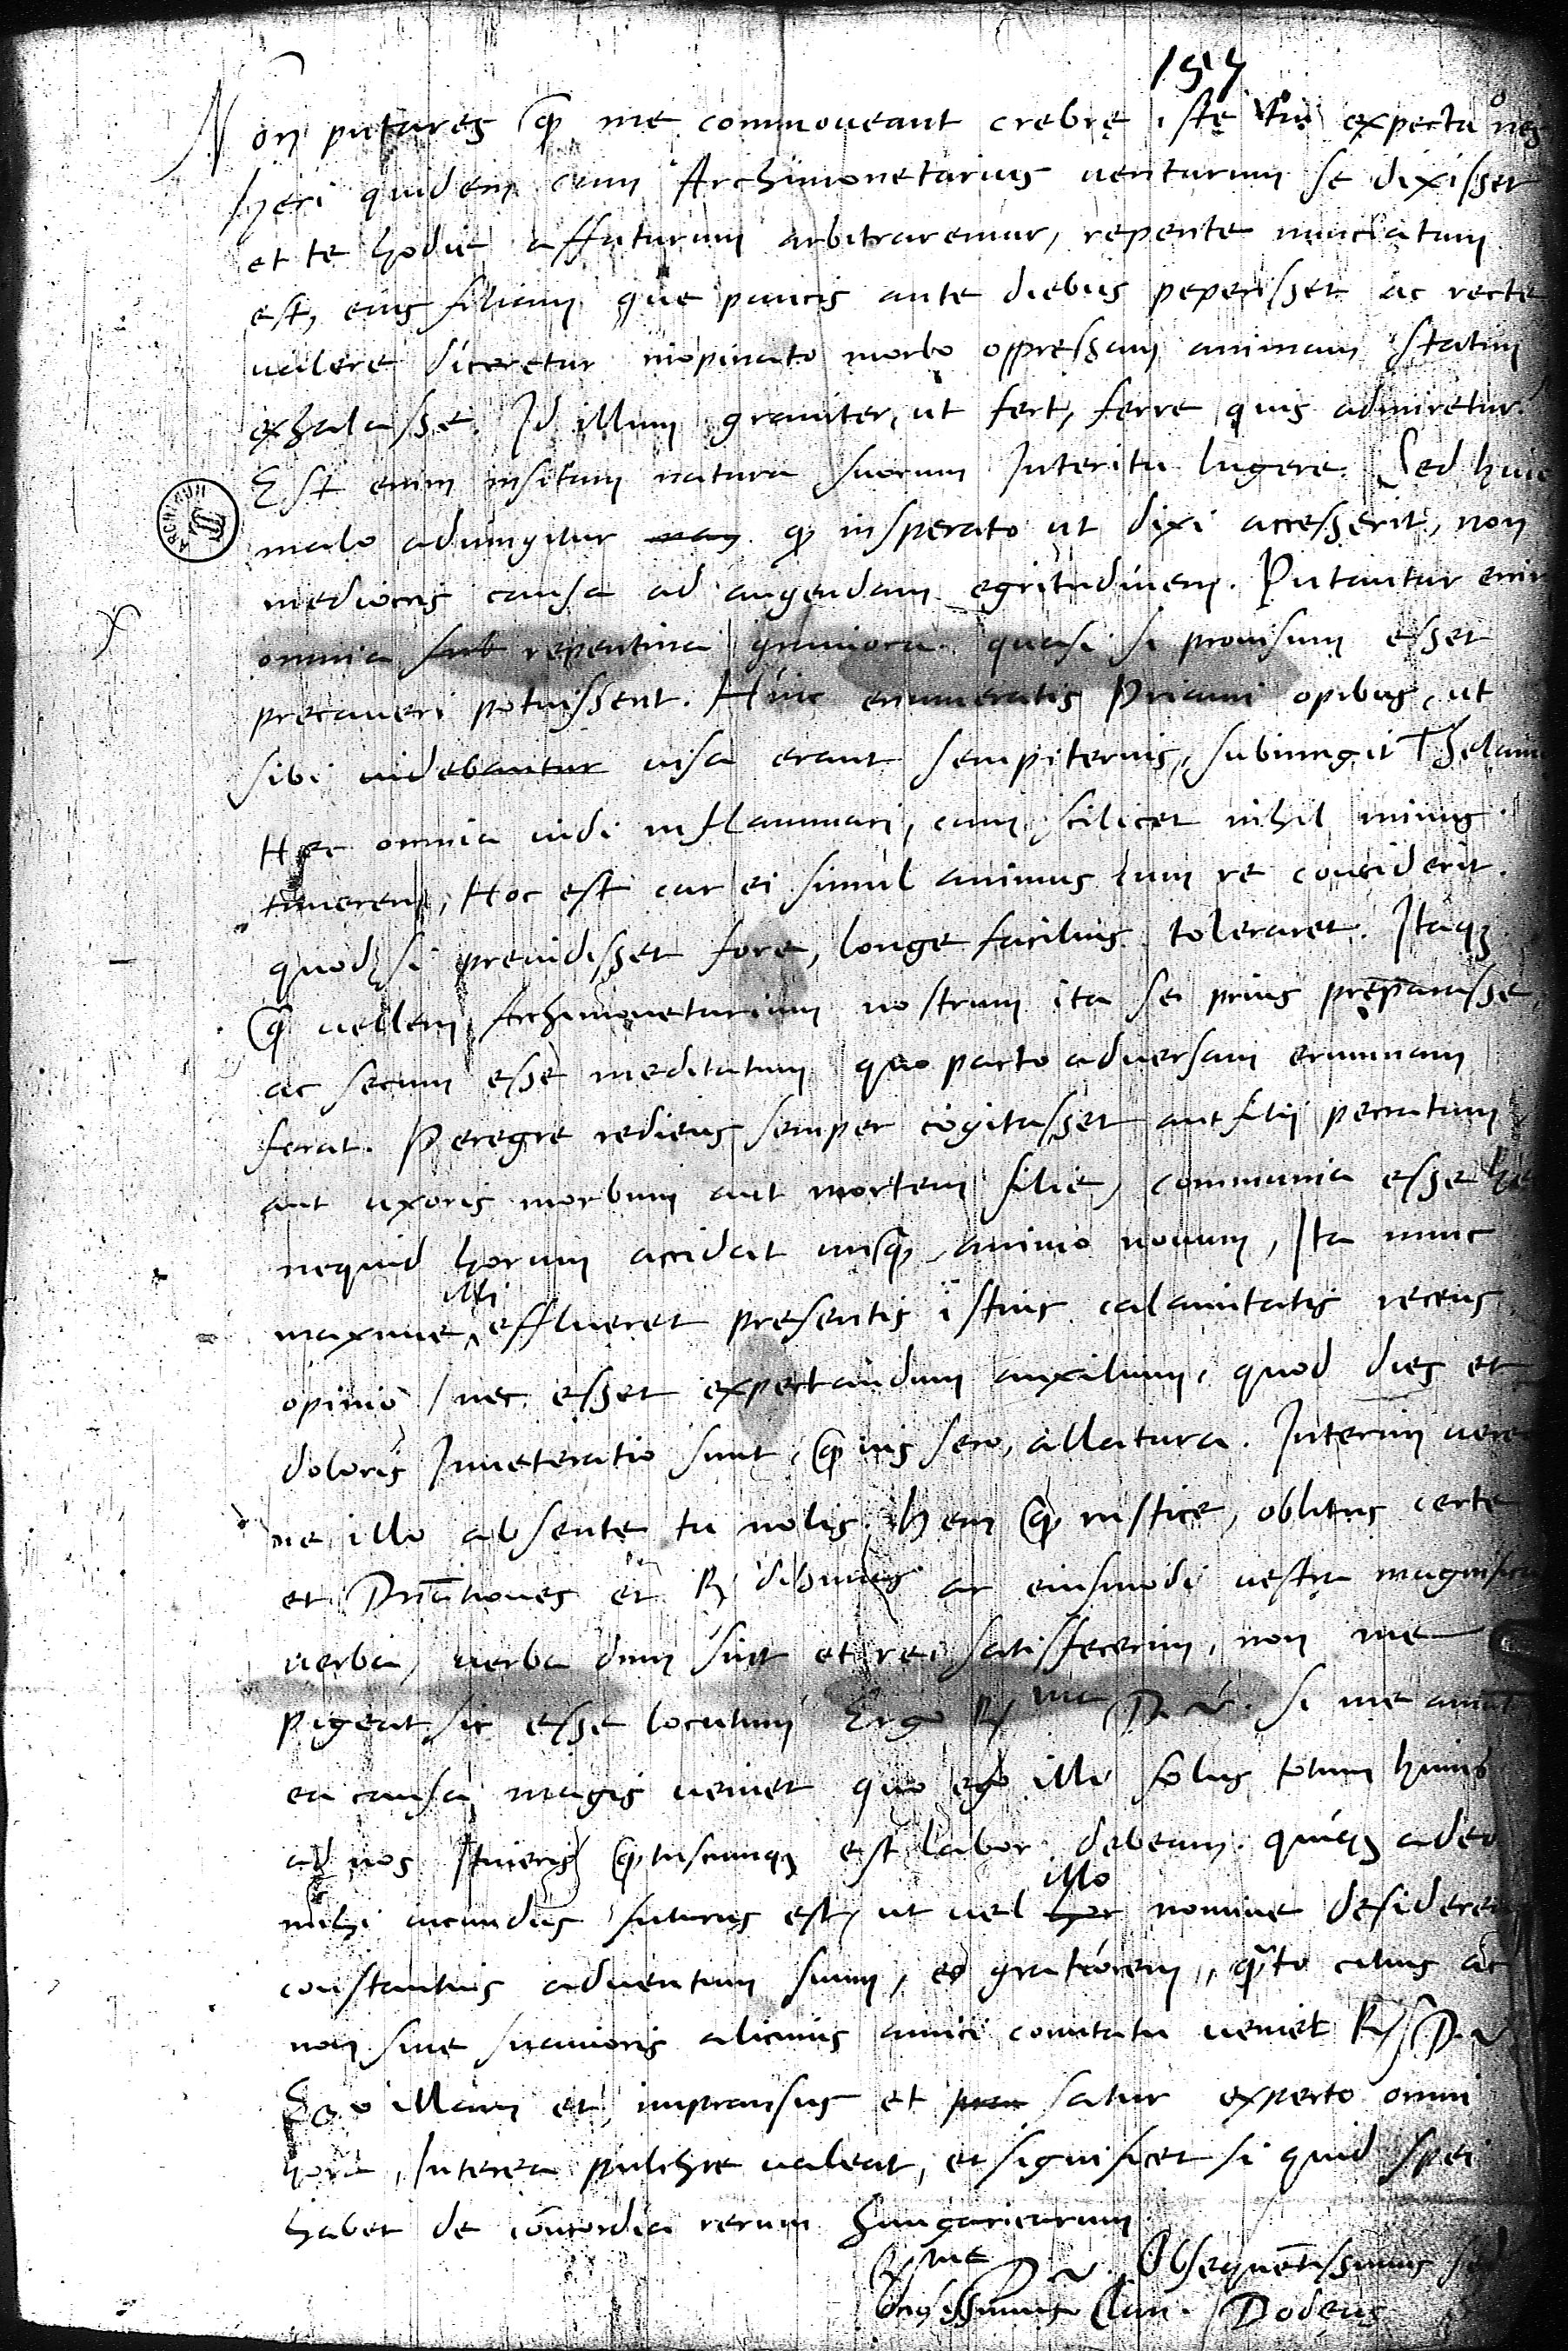 157
Non putares q̃ me commoueant crebrę istę tuę expectaones
Heri quidem cum Archimonetarius uenturum se dixisset
et te hodie affuturum arbitraremur, repente nunciatum
est, eius filiam que paucis ante diebus peperisset ac recte
ualere diceretur inopinato morbo oppressam animam statim
exhalasse. Id illum grauiter, ut fert, ferre quis admiretur?
Est enim insitum natura suorum Interitu lugere. Sed huic
ARCHIVUM
malo adiungitur q insperato ut dixi accesserit, non
mediocris causa ad augendam egritudinem. Putantur enim
omnia sub repentina grauiora. quasi si prouisum esset
precaueri potuissent. Hinc enumeratis Priami opibus, ut
sibi uidebantur uisa erant sempiternis, subiungit
Hęc omnia uidi inflammari, cum scilicet nihil minus
timerem, Hoc est cur ei simul animus cum re conciderit.
quod si preuidisset fore, longe facilius toleraret. Itaqȝ
q̃ uellem Archimonetarium nostrum ita se prius pręparasse,
ac secum esse meditatum quo pacto aduersam erumnam
ferat. Peregre rediens semper cogitasset aut filij peccatum
aut uxoris morbum aut mortem filie, communia esse hęc
nequid horum accidat unq̃ animo nouum, Ita nunc
maxime illi efflueret presentis istius calamitatis recens
opinio, nec esset expectandum auxilium, quod dies et
doloris Inueteratio sunt, q̃uis sero, allatura. Interim uereor
ne illo absente tu nolis. Hem q̃ rustice, oblitus certe
et Dñationes et R ac eiusmodi uestra magnifica
uerba, uerba dum sint et rei satisfecerim, non me
pigeat sic esse locutum Ergo R me D. V. si me amat
ea causa magis ueniet quo ego illi solus totum huius
ad nos Itineris q̃tuscunqȝ est labor debeam. quiqȝ adeo
mihi iucundus futurus est, ut uel illo nomine desiderem
constantius aduentum suum, eo gratiorem, q̃to citius ac
non sine suauioris alicuius amici comitatu ueniet R D. V.
Ego illam et impransus et satur expecto omni
hora, Interea pulchre ualeat, et significet si quid spei
habet de concordia rerum Hungaricarum
R me D V. Obsequẽtissimus
Clau. Dodeus